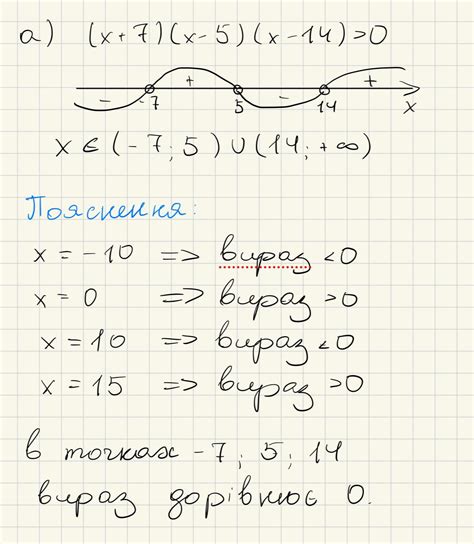 а) (x+7)(x-5)(x-14)>0
- -7 + 5 - 14 + x
x ∈ (-7; 5) ∪ (14; +∞)
Пояснення:
x = -10 => вираз <0
x = 0 => вираз >0
x = 10 => вираз <0
x = 15 => вираз >0
в точках -7; 5; 14
вираз дорівнює 0.